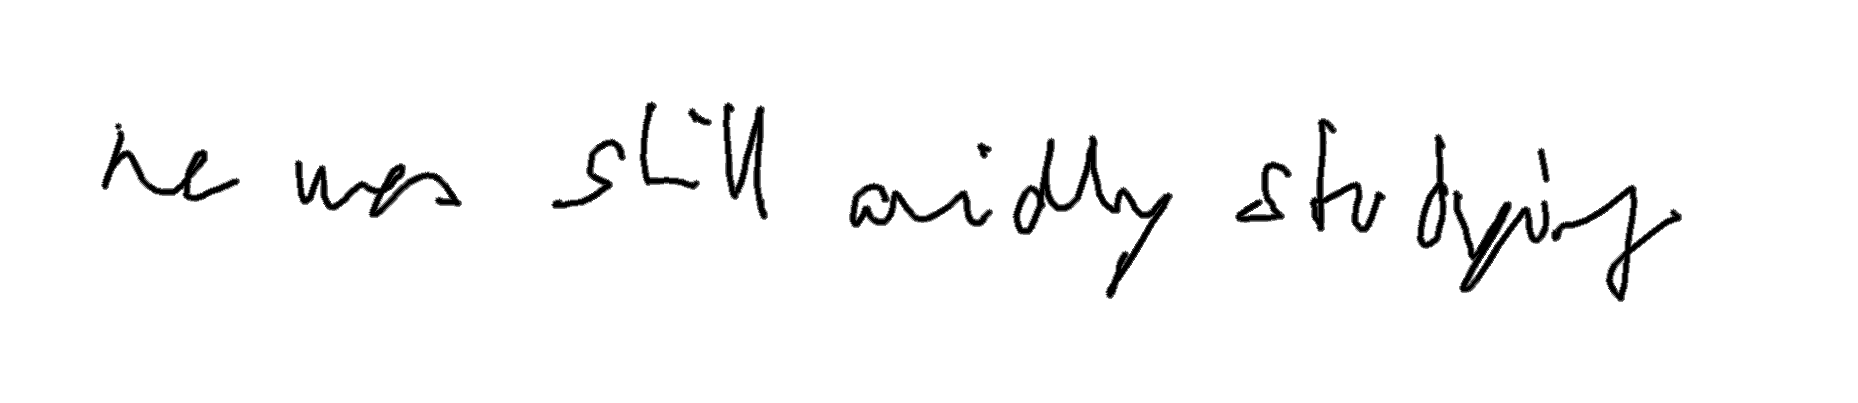 he was still avidly studying